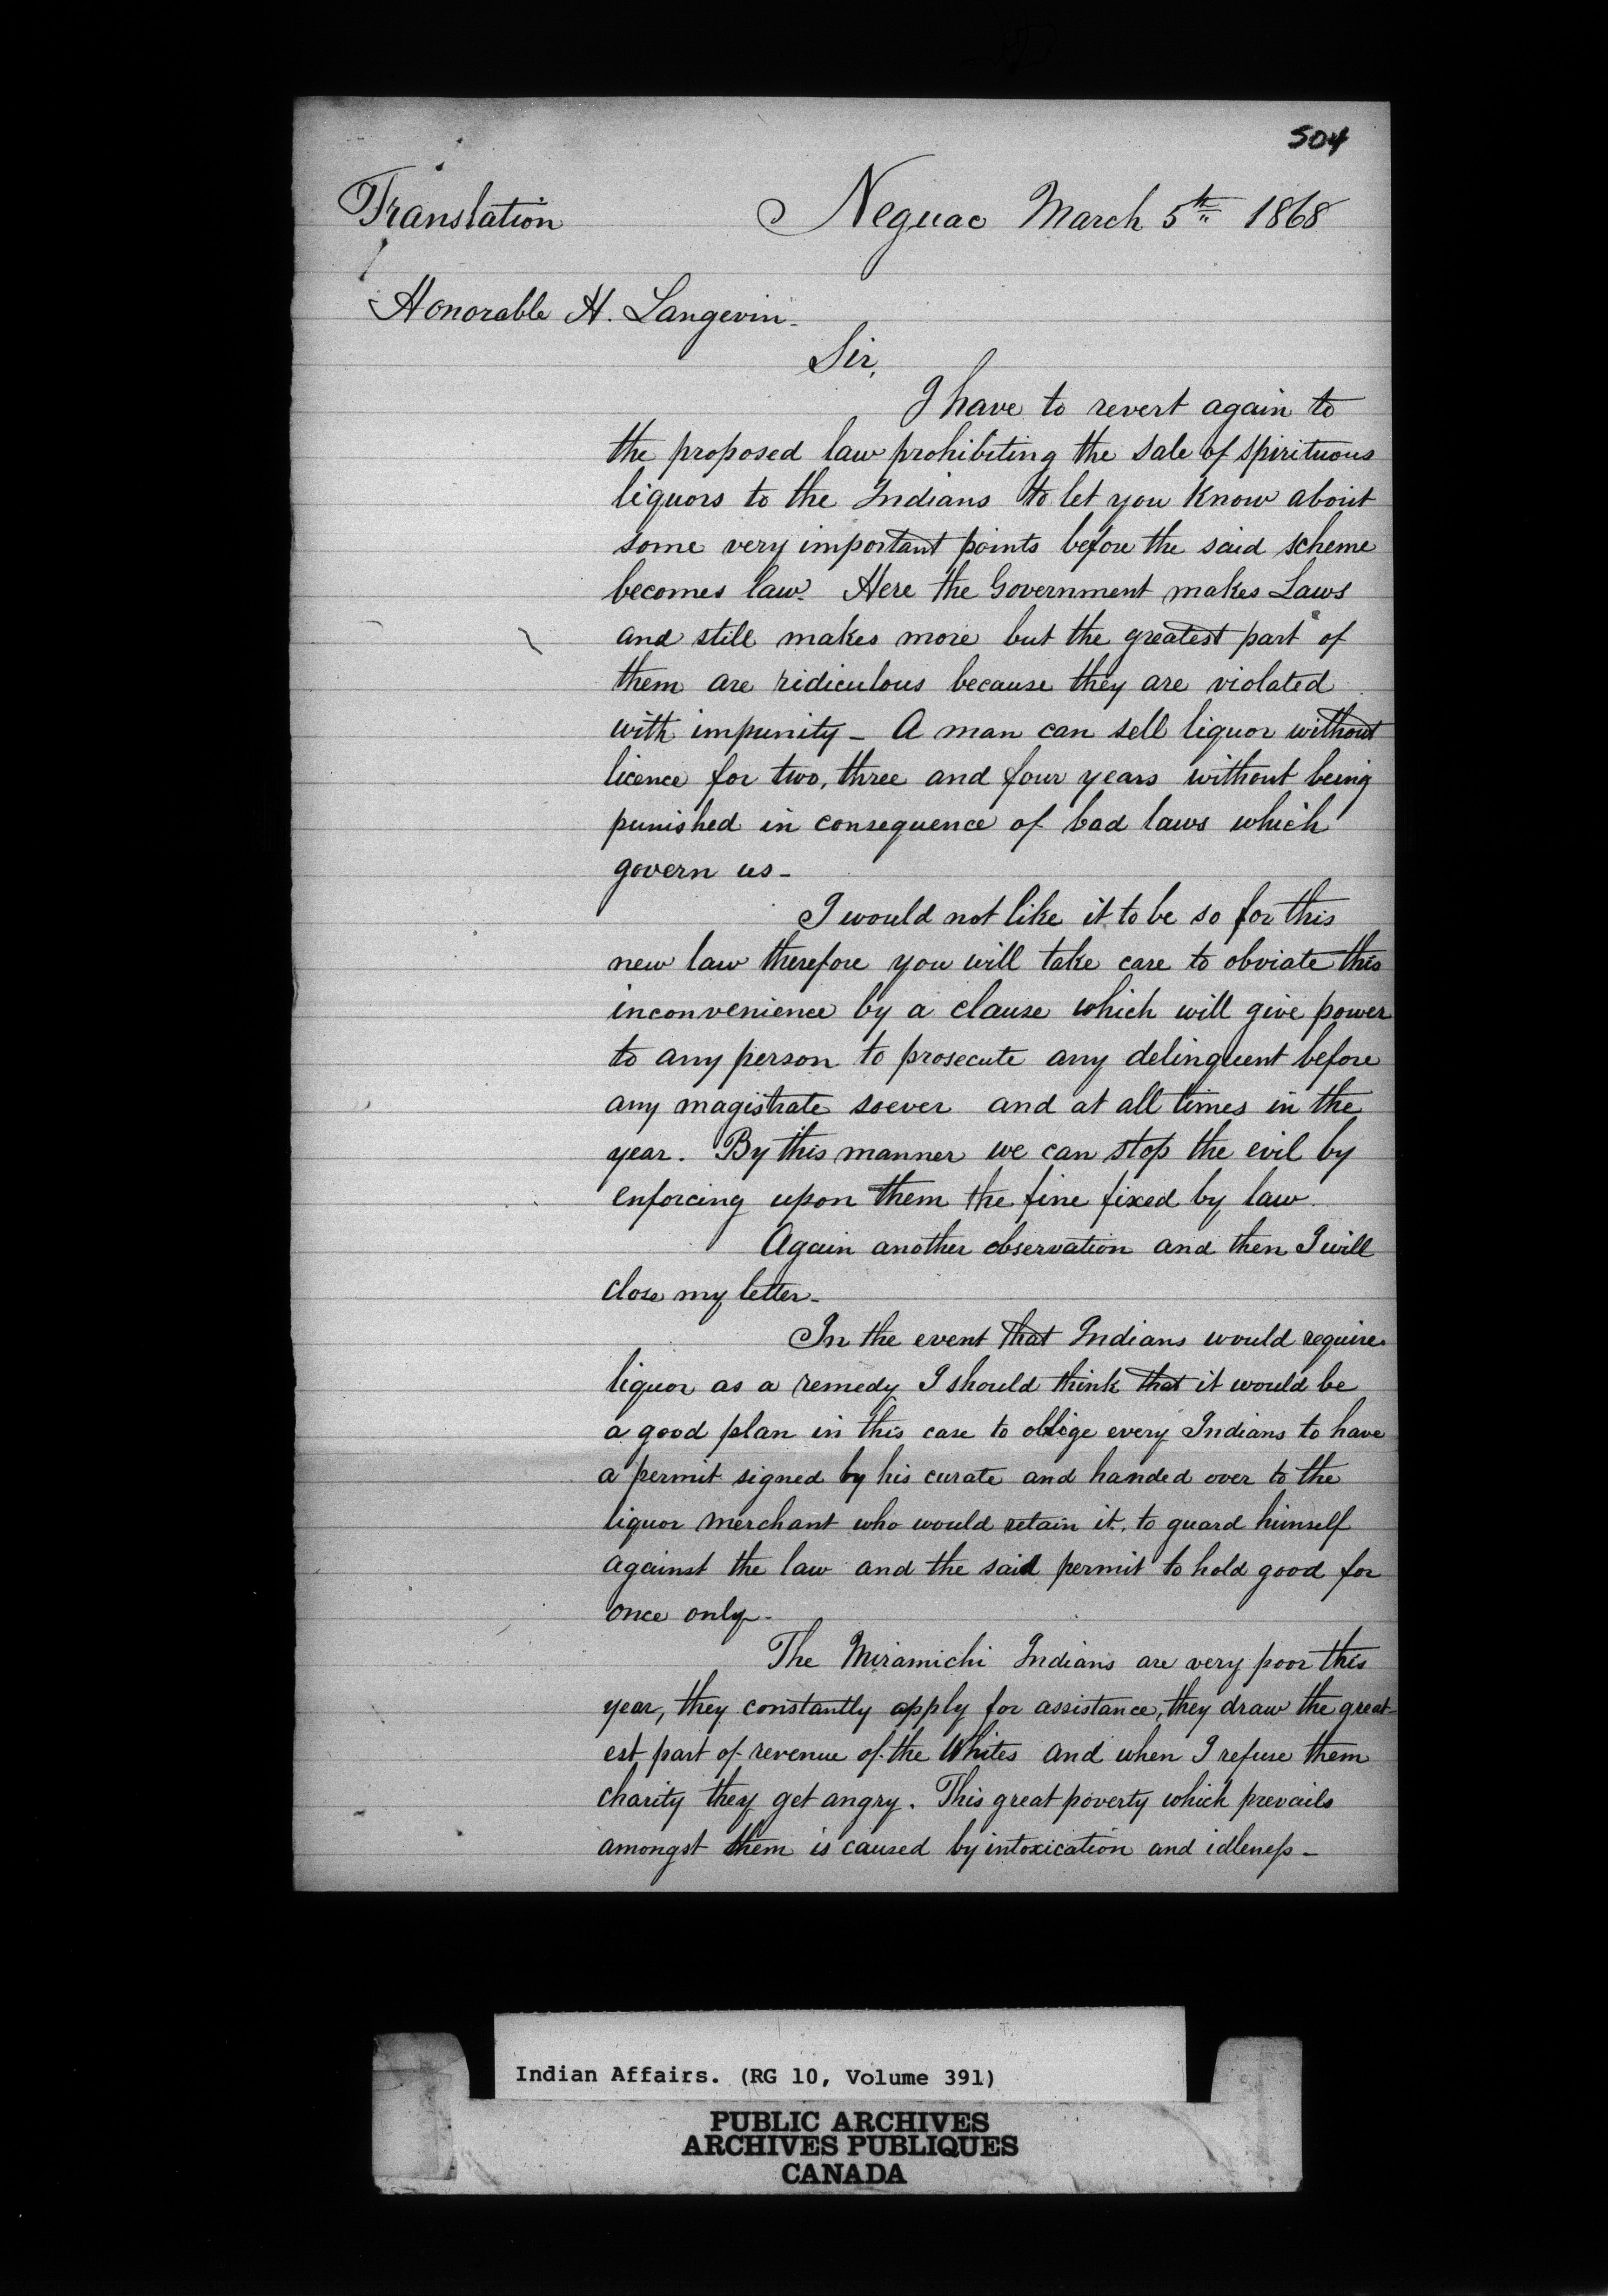 504
Translation Neguac March 5th 1868
Honorable H. Langevin -
Sir,
I have to revert again to
the proposed law prohibiting the sale of spirituous
liquors to the Indians to let you know about
some very important points before the said scheme
becomes law. Here the Government makes Laws
and still makes more but the greatest part of
them are ridiculous because they are violated
with impunity - A man can sell liquor without
licence for two, three and four years without being
punished in consequence of bad laws which
govern us -
I would not like it to be so for this
new law therefore you will take care to obviate this
inconvenience by a clause which will give power
to any person to prosecute any delinquent before
any magistrate soever and at all times in the
year. By this manner we can stop the evil by
enforcing upon them the fine fixed by law
Again another observation and then I will
close my letter -
In the event that Indians would require
liquor as a remedy I should think that it would be
a good plan in this case to oblige every Indians to have
a permit signed by his curate and handed over to the
liquor merchant who would retain it, to guard himself
against the law and the said permit to hold good for
once only -
The Miramichi Indians are very poor this
year, they constantly apply for assistance, they draw the great-
est part of revenue of the Whites and when I refuse them
charity they get angry. This great poverty which prevails
amongst them is caused by intoxication and idleness -
Indian Affairs. (RG 10, Volume 391)
PUBLIC ARCHIVES
ARCHIVES PUBLIQUES
CANADA